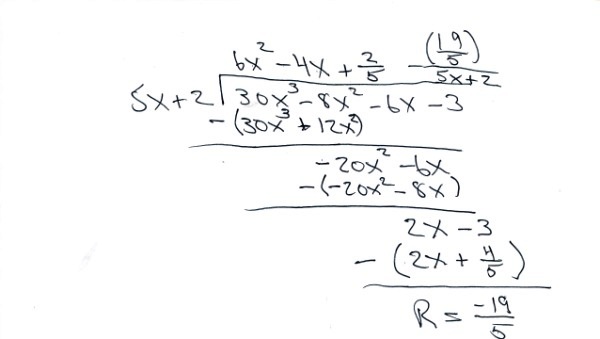 6x² - 4x + 2/5 - (19/5)/(5x+2)
5x+2 √ 30x³ - 8x² - 6x - 3
- (30x³ + 12x²)
-20x² - 6x
- (-20x² - 8x)
2x - 3
- (2x + 4/5)
R = -19/5